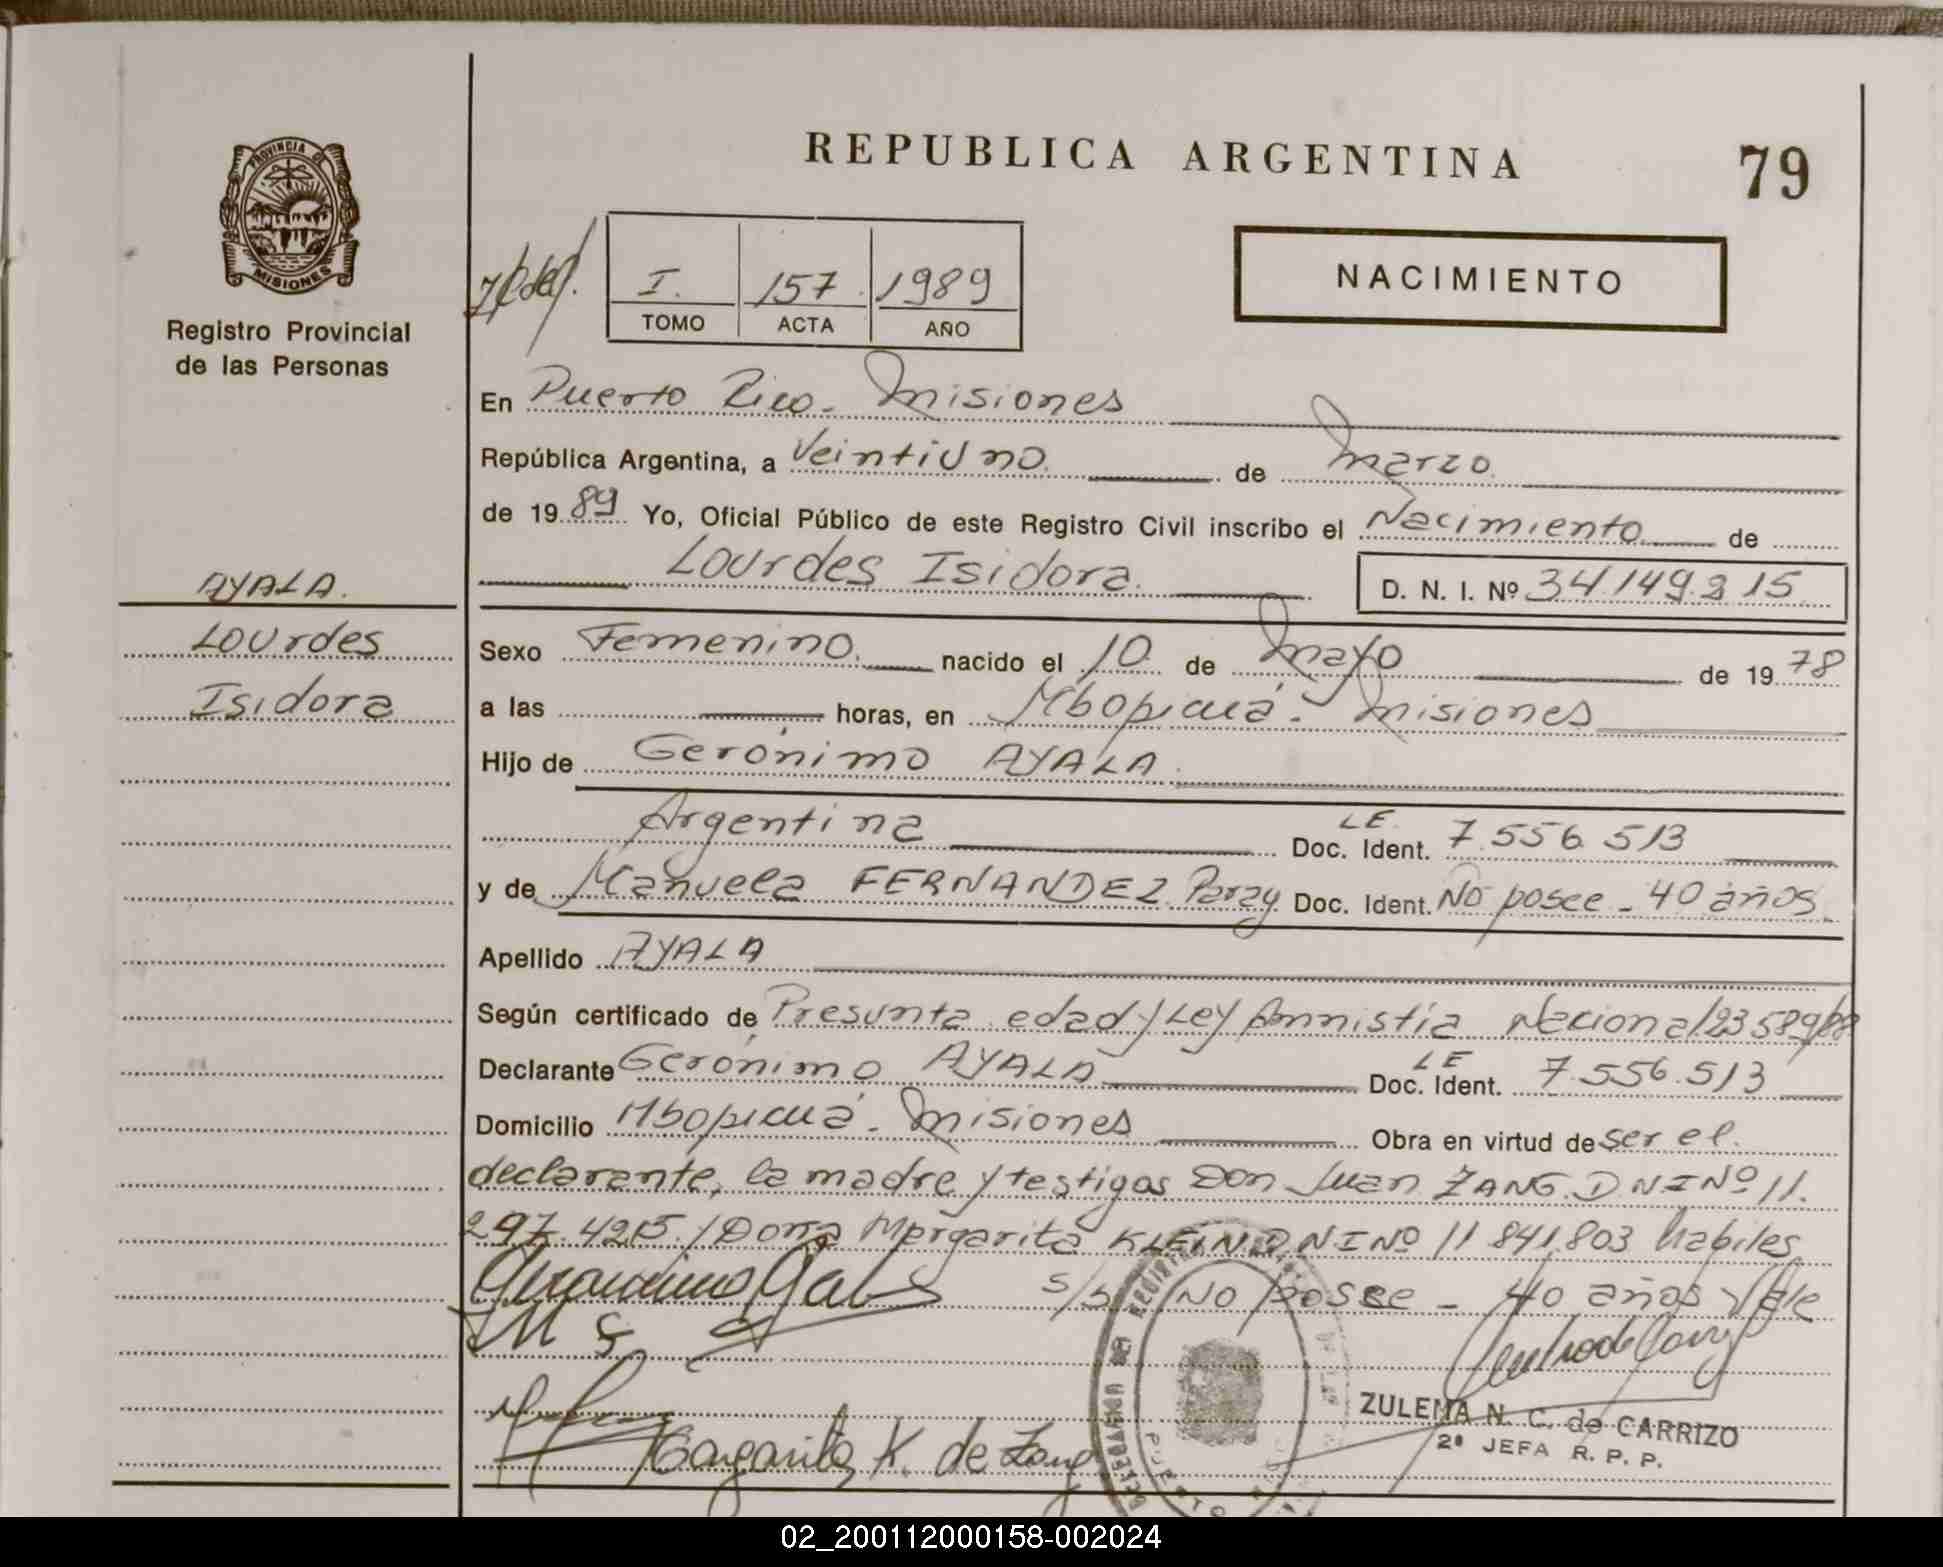 REPUBLICA ARGENTINA
79
PROVINCIA DE
MISIONES
Registro Provincial
de las Personas
I. 157 1989
TOMO ACTA AÑO
NACIMIENTO
En Puerto Rico - Misiones
República Argentina, a Veintiuno de Marzo
de 1989 Yo, Oficial Público de este Registro Civil inscribo el Nacimiento de
Lourdes Isidora D. N. I. Nº 34.149.315
AYALA.
Lourdes
Isidora
Sexo Femenino. nacido el 10 de Mayo de 1978
a las horas, en Mbopicuá - Misiones
Hijo de Gerónimo AYALA.
Argentina Doc. Ident. LE 7.556.513
y de Manuela FERNANDEZ Paray Doc. Ident. No posee - 40 años
Apellido AYALA
Según certificado de Presunta edad y Ley Amnistía Nacional 23589/88
Declarante Gerónimo AYALA Doc. Ident. LE 7.556.513
Domicilio Mbopicuá - Misiones Obra en virtud de ser el
declarante, la madre y testigos Don Juan ZANG. DNI Nº 11.
297.425./Doña Margarita KLEIN DNI Nº 11 841.803 habiles
s/b No posee - 40 años Vale
Margarita K. de Zang
ZULEMA N. C. de CARRIZO
2ª JEFA R. P. P.
02_200112000158-002024